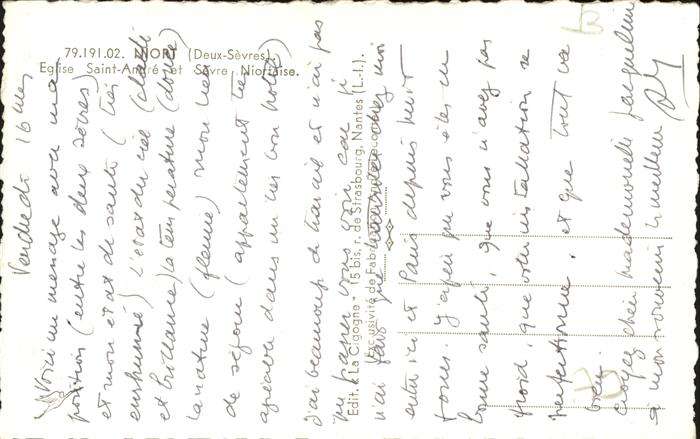 79.191.02. NIORT (Deux-Sèvres).
Eglise Saint-André et Sèvre Niortaise.
Edit. « La Cigogne » 15 bis, r. de Strasbourg, Nantes (L.-I.).
Exclusivité de Fabrication
Vendredi 16 mai
Voici un message avec ma
position (entre les deux Sèvres)
et mon état de santé (très
enrhumé) l'état du ciel
et brillance) la température (douce)
la nature (fleurie) mon lieu
de séjour (appartement très
agréable dans un très bon hôtel)
J'ai beaucoup de travail et n'ai pas
pu passer vous voir car je
n'ai fait que chez moi
entre ici et Paris depuis huit
jours. J'espère que vous êtes en
bonne santé, que vous n'avez pas
froid, que votre installation se
perfectionne, et que tout va
bien.
Croyez chère mademoiselle Jacqueline
à mon souvenir le meilleur